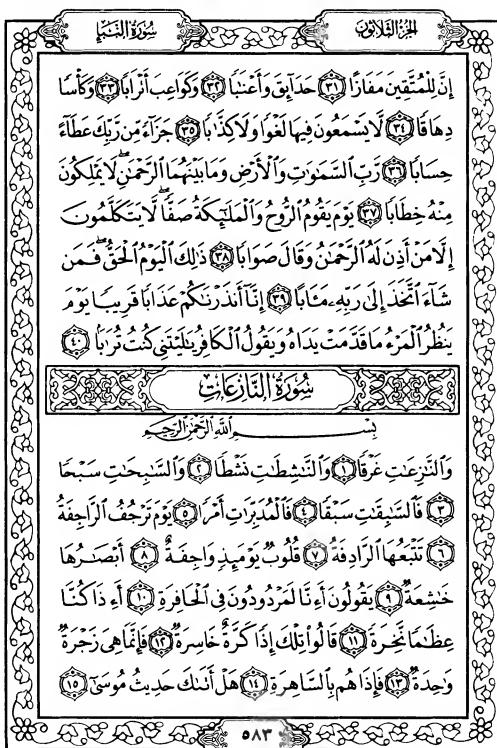 الجزء الثلاثون
سورة النبإ
إِنَّ لِلْمُتَّقِينَ مَفَازًا ٣١ حَدَآئِقَ وَأَعْنَٰبًا ٣٢ وَكَوَاعِبَ أَتْرَابًا ٣٣ وَكَأْسًا
دِهَاقًا ٣٤ لَّا يَسْمَعُونَ فِيهَا لَغْوًا وَلَا كِذَّٰبًا ٣٥ جَزَآءً مِّن رَّبِّكَ عَطَآءً
حِسَابًا ٣٦ رَّبِّ السَّمَٰوَٰتِ وَالْأَرْضِ وَمَا بَيْنَهُمَا الرَّحْمَٰنِ لَا يَمْلِكُونَ
مِنْهُ خِطَابًا ٣٧ يَوْمَ يَقُومُ الرُّوحُ وَالْمَلَٰٓئِكَةُ صَفًّا لَّا يَتَكَلَّمُونَ
إِلَّا مَنْ أَذِنَ لَهُ الرَّحْمَٰنُ وَقَالَ صَوَابًا ٣٨ ذَٰلِكَ الْيَوْمُ الْحَقُّ فَمَن
شَآءَ اتَّخَذَ إِلَىٰ رَبِّهِ مَـَٔابًا ٣٩ إِنَّآ أَنذَرْنَٰكُمْ عَذَابًا قَرِيبًا يَوْمَ
يَنظُرُ الْمَرْءُ مَا قَدَّمَتْ يَدَاهُ وَيَقُولُ الْكَافِرُ يَٰلَيْتَنِي كُنتُ تُرَٰبًا ٤٠
سورة النازعات
بِسْمِ اللَّهِ الرَّحْمَٰنِ الرَّحِيمِ
وَالنَّٰزِعَٰتِ غَرْقًا ١ وَالنَّٰشِطَٰتِ نَشْطًا ٢ وَالسَّٰبِحَٰتِ سَبْحًا
٣ فَالسَّٰبِقَٰتِ سَبْقًا ٤ فَالْمُدَبِّرَٰتِ أَمْرًا ٥ يَوْمَ تَرْجُفُ الرَّاجِفَةُ
٦ تَتْبَعُهَا الرَّادِفَةُ ٧ قُلُوبٌ يَوْمَئِذٍ وَاجِفَةٌ ٨ أَبْصَٰرُهَا
خَٰشِعَةٌ ٩ يَقُولُونَ أَءِنَّا لَمَرْدُودُونَ فِي الْحَافِرَةِ ١٠ أَءِذَا كُنَّا
عِظَٰمًا نَّخِرَةً ١١ قَالُوا تِلْكَ إِذًا كَرَّةٌ خَاسِرَةٌ ١٢ فَإِنَّمَا هِيَ زَجْرَةٌ
وَٰحِدَةٌ ١٣ فَإِذَا هُم بِالسَّاهِرَةِ ١٤ هَلْ أَتَىٰكَ حَدِيثُ مُوسَىٰٓ ١٥
٥٨٣